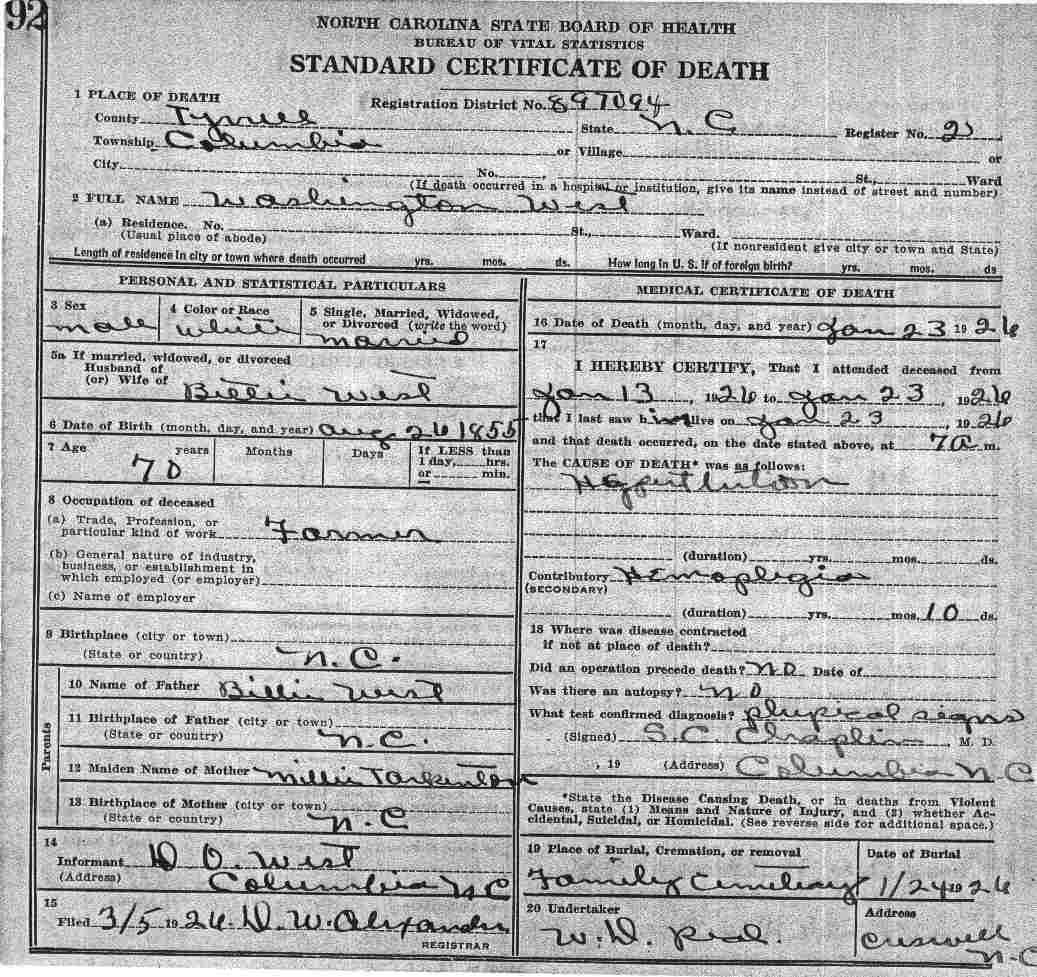 92
NORTH CAROLINA STATE BOARD OF HEALTH
BUREAU OF VITAL STATISTICS
STANDARD CERTIFICATE OF DEATH
1 PLACE OF DEATH Registration District No. 897094
County Tyrrell State N. C Register No. 2
Township Columbia or Village or
City No. St., Ward
(If death occurred in a hospital or institution, give its name instead of street and number)
2 FULL NAME Washington West
(a) Residence. No. St., Ward.
(Usual place of abode) (If nonresident give city or town and State)
Length of residence in city or town where death occurred yrs. mos. ds. How long in U. S. if of foreign birth? yrs. mos. ds
PERSONAL AND STATISTICAL PARTICULARS
3 Sex male
4 Color or Race white
5 Single, Married, Widowed,
or Divorced (write the word)
married
5a If married, widowed, or divorced
Husband of
(or) Wife of Billie West
6 Date of Birth (month, day, and year) Aug 26 1855
7 Age years Months Days If LESS than
70 1 day, hrs.
or min.
8 Occupation of deceased
(a) Trade, Profession, or
particular kind of work Farmer
(b) General nature of industry,
business, or establishment in
which employed (or employer)
(c) Name of employer
9 Birthplace (city or town)
(State or country) N. C.
Parents
10 Name of Father Billie West
11 Birthplace of Father (city or town)
(State or country) N. C.
12 Maiden Name of Mother Millie Tarkenton
13 Birthplace of Mother (city or town)
(State or country) N. C
14
Informant D O. West
(Address) Columbia N C
15
Filed 3/5 1926. D. W. Alexander
REGISTRAR
MEDICAL CERTIFICATE OF DEATH
16 Date of Death (month, day, and year) Jan 23 1926
17
I HEREBY CERTIFY, That I attended deceased from
Jan 13, 1926 to Jan 23, 1926
that I last saw him alive on Jan 23, 1926
and that death occurred, on the date stated above, at 7a m.
The CAUSE OF DEATH* was as follows:
(duration) yrs. mos. ds.
Contributory Hemoplegia
(SECONDARY)
(duration) yrs. mos. 10 ds.
18 Where was disease contracted
if not at place of death?
Did an operation precede death? no Date of
Was there an autopsy? no
What test confirmed diagnosis? physical signs
(Signed) S. C. Chaplin, M. D.
, 19 (Address) Columbia N. C
*State the Disease Causing Death, or in deaths from Violent
Causes, state (1) Means and Nature of Injury, and (2) whether Ac-
cidental, Suicidal, or Homicidal. (See reverse side for additional space.)
19 Place of Burial, Cremation, or removal Date of Burial
Family Cemetary 1/24 1926
20 Undertaker Address
W. D. Creswell
N-C